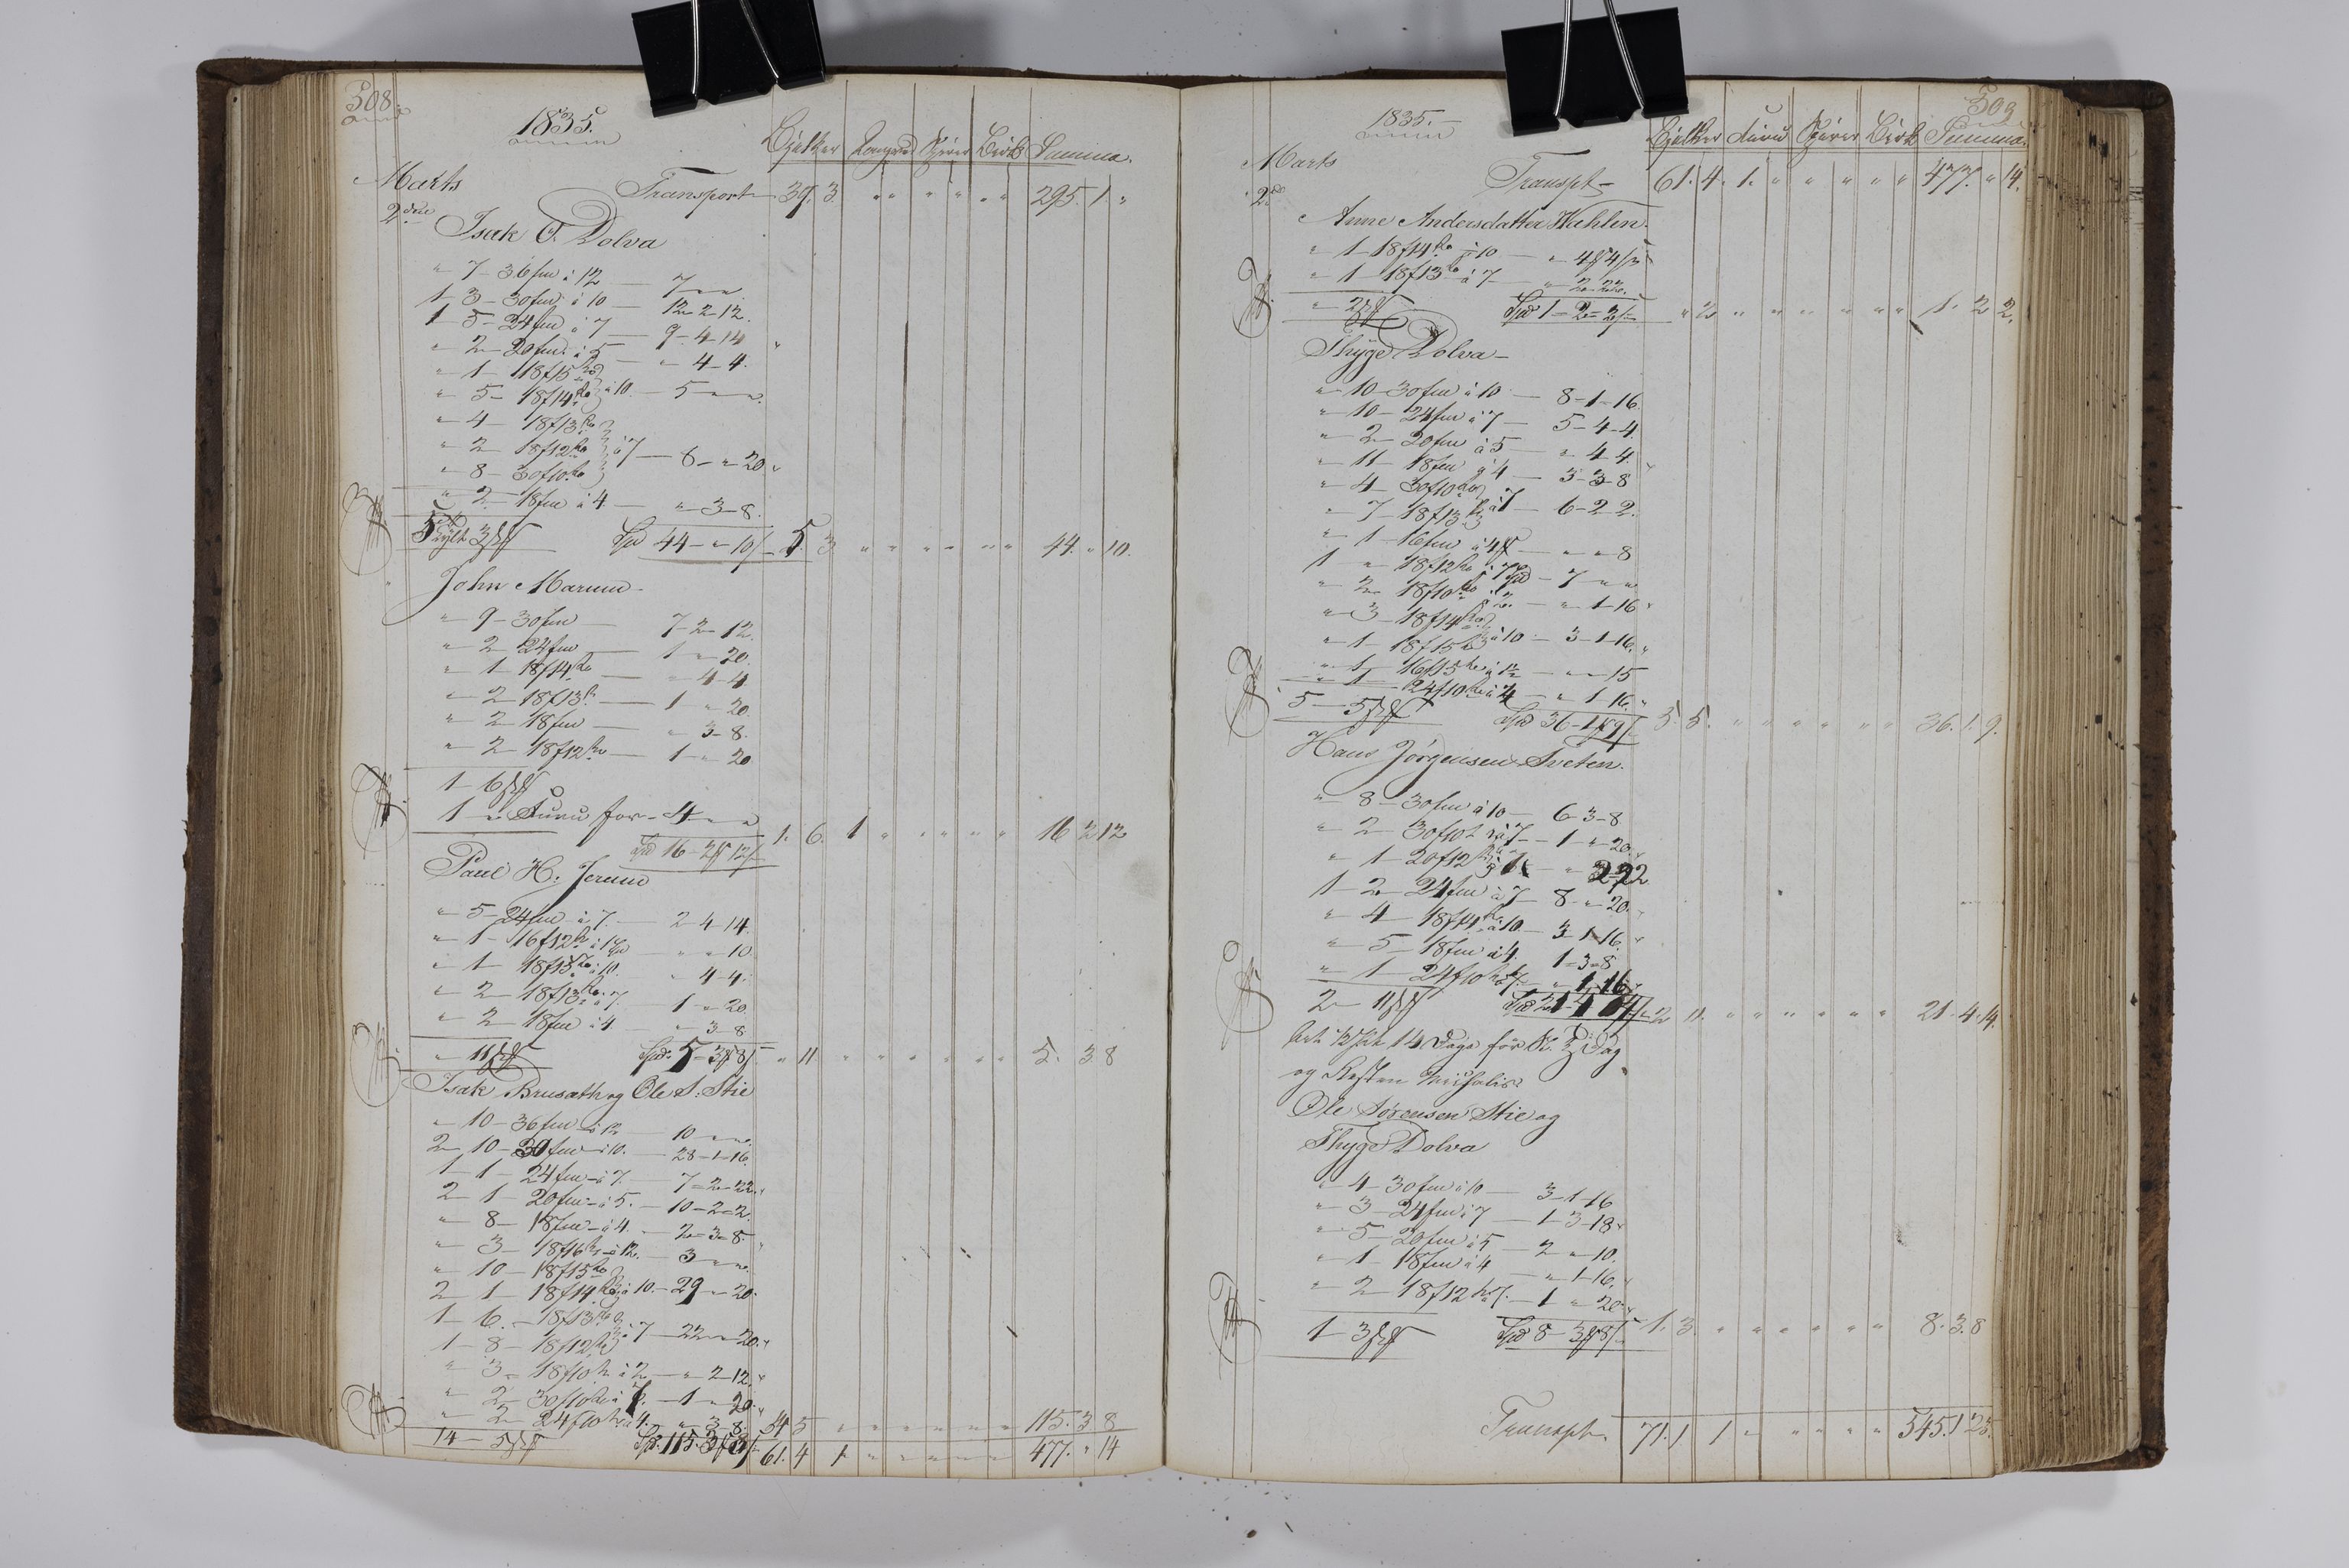 308.
1835.
Bjelker Langved Sperer Birk Summa.
Marts Transport 39. 3. " " " " " " 295. 1 "
2den Isak O. Dolva
" 7 - 36fm à 12 — 7 " "
1 3 - 30fm à 10 — 12 - 2 - 12.
1 5 - 24fm à 7 — 9 - 4 - 14
" 2 - 20fm à 5 — " 4 - 4.
" 1 - 18f15
" 5 - 18f14 à 10 — 5 " "
" 4 - 18f13
" 2 - 18f12 à 7 — 8 - " 20
" 8 - 30f10
" 2 - 18fm à 4 — " 3 - 8.
5 Tylt 3 Spd 44 - " 10/ 5. 3 " " " " " " 44. " 10.
John Marum
" 9 - 30fm — 7 - 2 - 12.
" 2 - 24fm — 1 " 20.
" 1 - 18f14 — " 4 - 4
" 2 - 18f13 — 1 " 20.
" 2 - 18fm — " 3 - 8.
" 2 - 18f12 — 1 - " 20
1 - 6
1 " Furu for - 4 " "
Spd 16 - 2 12/ 1. 6. 1 " " " " " 16 2 12
Paul H. Jerum
" 5 - 24fm à 7. — 2 4 14.
" 1 - 16f12 — " " 10
" 1 - 18f15 à 10. — " 4 - 4.
" 2 - 18f13 à 7. — 1 " 20.
" 2 - 18fm à 4 — " 3 - 8
" 11 Spd. 5 - 3 8/ " 11 " " " " " " 5. 3 8
Isak Brusath og Ole S. Stie
" 10 - 36fm à 12 — 10 " "
2 - 10 - 30fm à 10. — 28 - 1 - 16.
1 - 1 - 24fm à 7. — 7 - 2 - 22.
2 - 1 - 20fm à 5. — 10 - 2 - 2.
" 8 - 18fm à 4. — 2 - 3 - 8.
" 3 - 18f16 à 12. — 3 " "
" 10 - 18f15
2 - 1 - 18f14 à 10. — 29 " 20.
1 - 6. - 18f13
1 - 8 - 18f12 à 7 — 22 " 20.
" 3 - 18f10 à 2 — " 2 - 12.
" 2 - 30f10 à 7. — 1 " 20.
" 2 - 24f10 à 4. — " 3 - 8. 14 5 " " " " " " 115. 3 8
14 - 5 Spd. 115. 3 8/ 61. 4 1 " " " " " 477. " 14
309
1835.
Bjelker Furu Sperer Birk Summa.
Marts
2den Transpt. 61. 4. 1. " " " " " 477. " 14.
Anne Andersdatter Wahlen.
" 1 - 18f14 à 10 — " 4 4/
" 1 - 18f13 à 7 — " 2 - 22.
" 2 Spd 1 - 2 - 2/ " 2 " " " " " " 1. 2 2.
Thyge Dolva
" 10 - 30fm à 10 — 8 - 1 - 16.
" 10 - 24fm à 7 — 5 - 4 - 4.
" 2 - 20fm à 5 — " 4 4.
" 11 - 18fm à 4 — 3 - 3 - 8
" 4 - 30f10
" 7 - 18f13 à 7 — 6 - 2 2.
" 1 - 16fm — " " 8
1 " 18f12 — 7 " "
" 2 - 18f10 — " 1 - 16
" 3 - 18f14
" 1 - 18f15 à 10 — 3 - 1 - 16.
" 1 - 16f15 — " " 15
" 1 - 24f10 à 4 — " 1 16.
5 - 5 Spd 36 - 1 9/ 5. 5. " " " " " " 36. 1. 9.
Hans Jörgensen Sveten.
" 8 - 30fm à 10 — 6 - 3 - 8
" 2 - 30f10 à 7 — 1 " 20.
" 1 - 20f12
1 2 - 24fm à 7 — 8 " 20.
" 4 - 18f14 à 10. — 3 1 - 16.
" 5 - 18fm à 4. — 1 - 3 - 8
" 1 - 24f10 — " 1 - 16
2 - 11 Spd 21 4 14/ 2 11. " " " " " " 21. 4. 14.
14 Dage for
og Resten
Ole Sörensen Stie og
Thyge Dolva
" 4 - 30fm à 10 — 3 - 1 - 16
" 3 - 24fm à 7 — 1 - 3 - 18
" 5 - 20fm à 5 — 2 " 10.
" 1 - 18fm à 4 — " 1 - 16.
" 2 - 18f12 à 7. — 1 " 20.
1 - 3 Spd 8 - 3 8/ 1. 3. " " " " " " 8. 3. 8
Transpt. 71. 1 1 " " " " " 545. 1 23.